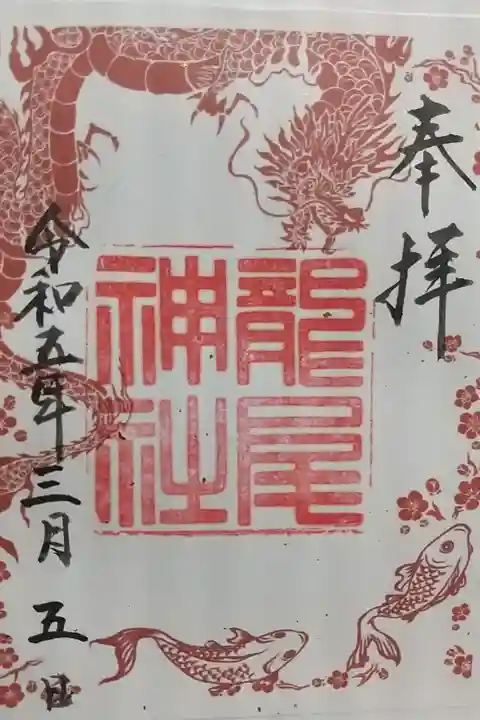 奉拝
龍尾
神社
令和五年三月五日